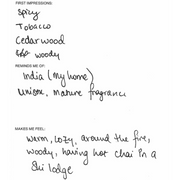 FIRST IMPRESSIONS:
Spicy
Tobacco
Cedarwood
woody
REMINDS ME OF:
India (my home)
Unisex, mature fragrance
MAKES ME FEEL:
warm, cozy, around the fire,
woody, having hot chai in a
ski lodge